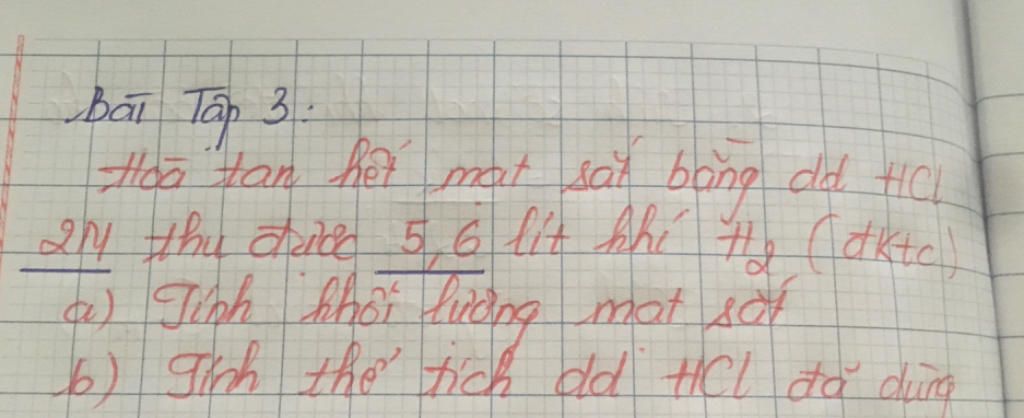 Bài Tập 3:
Hoà tan hết mạt sắt bằng dd HCl
2M thu được 5,6 lít khí H₂ (đktc)
a) Tính khối lượng mạt sắt
b) Tính thể tích dd HCl đã dùng